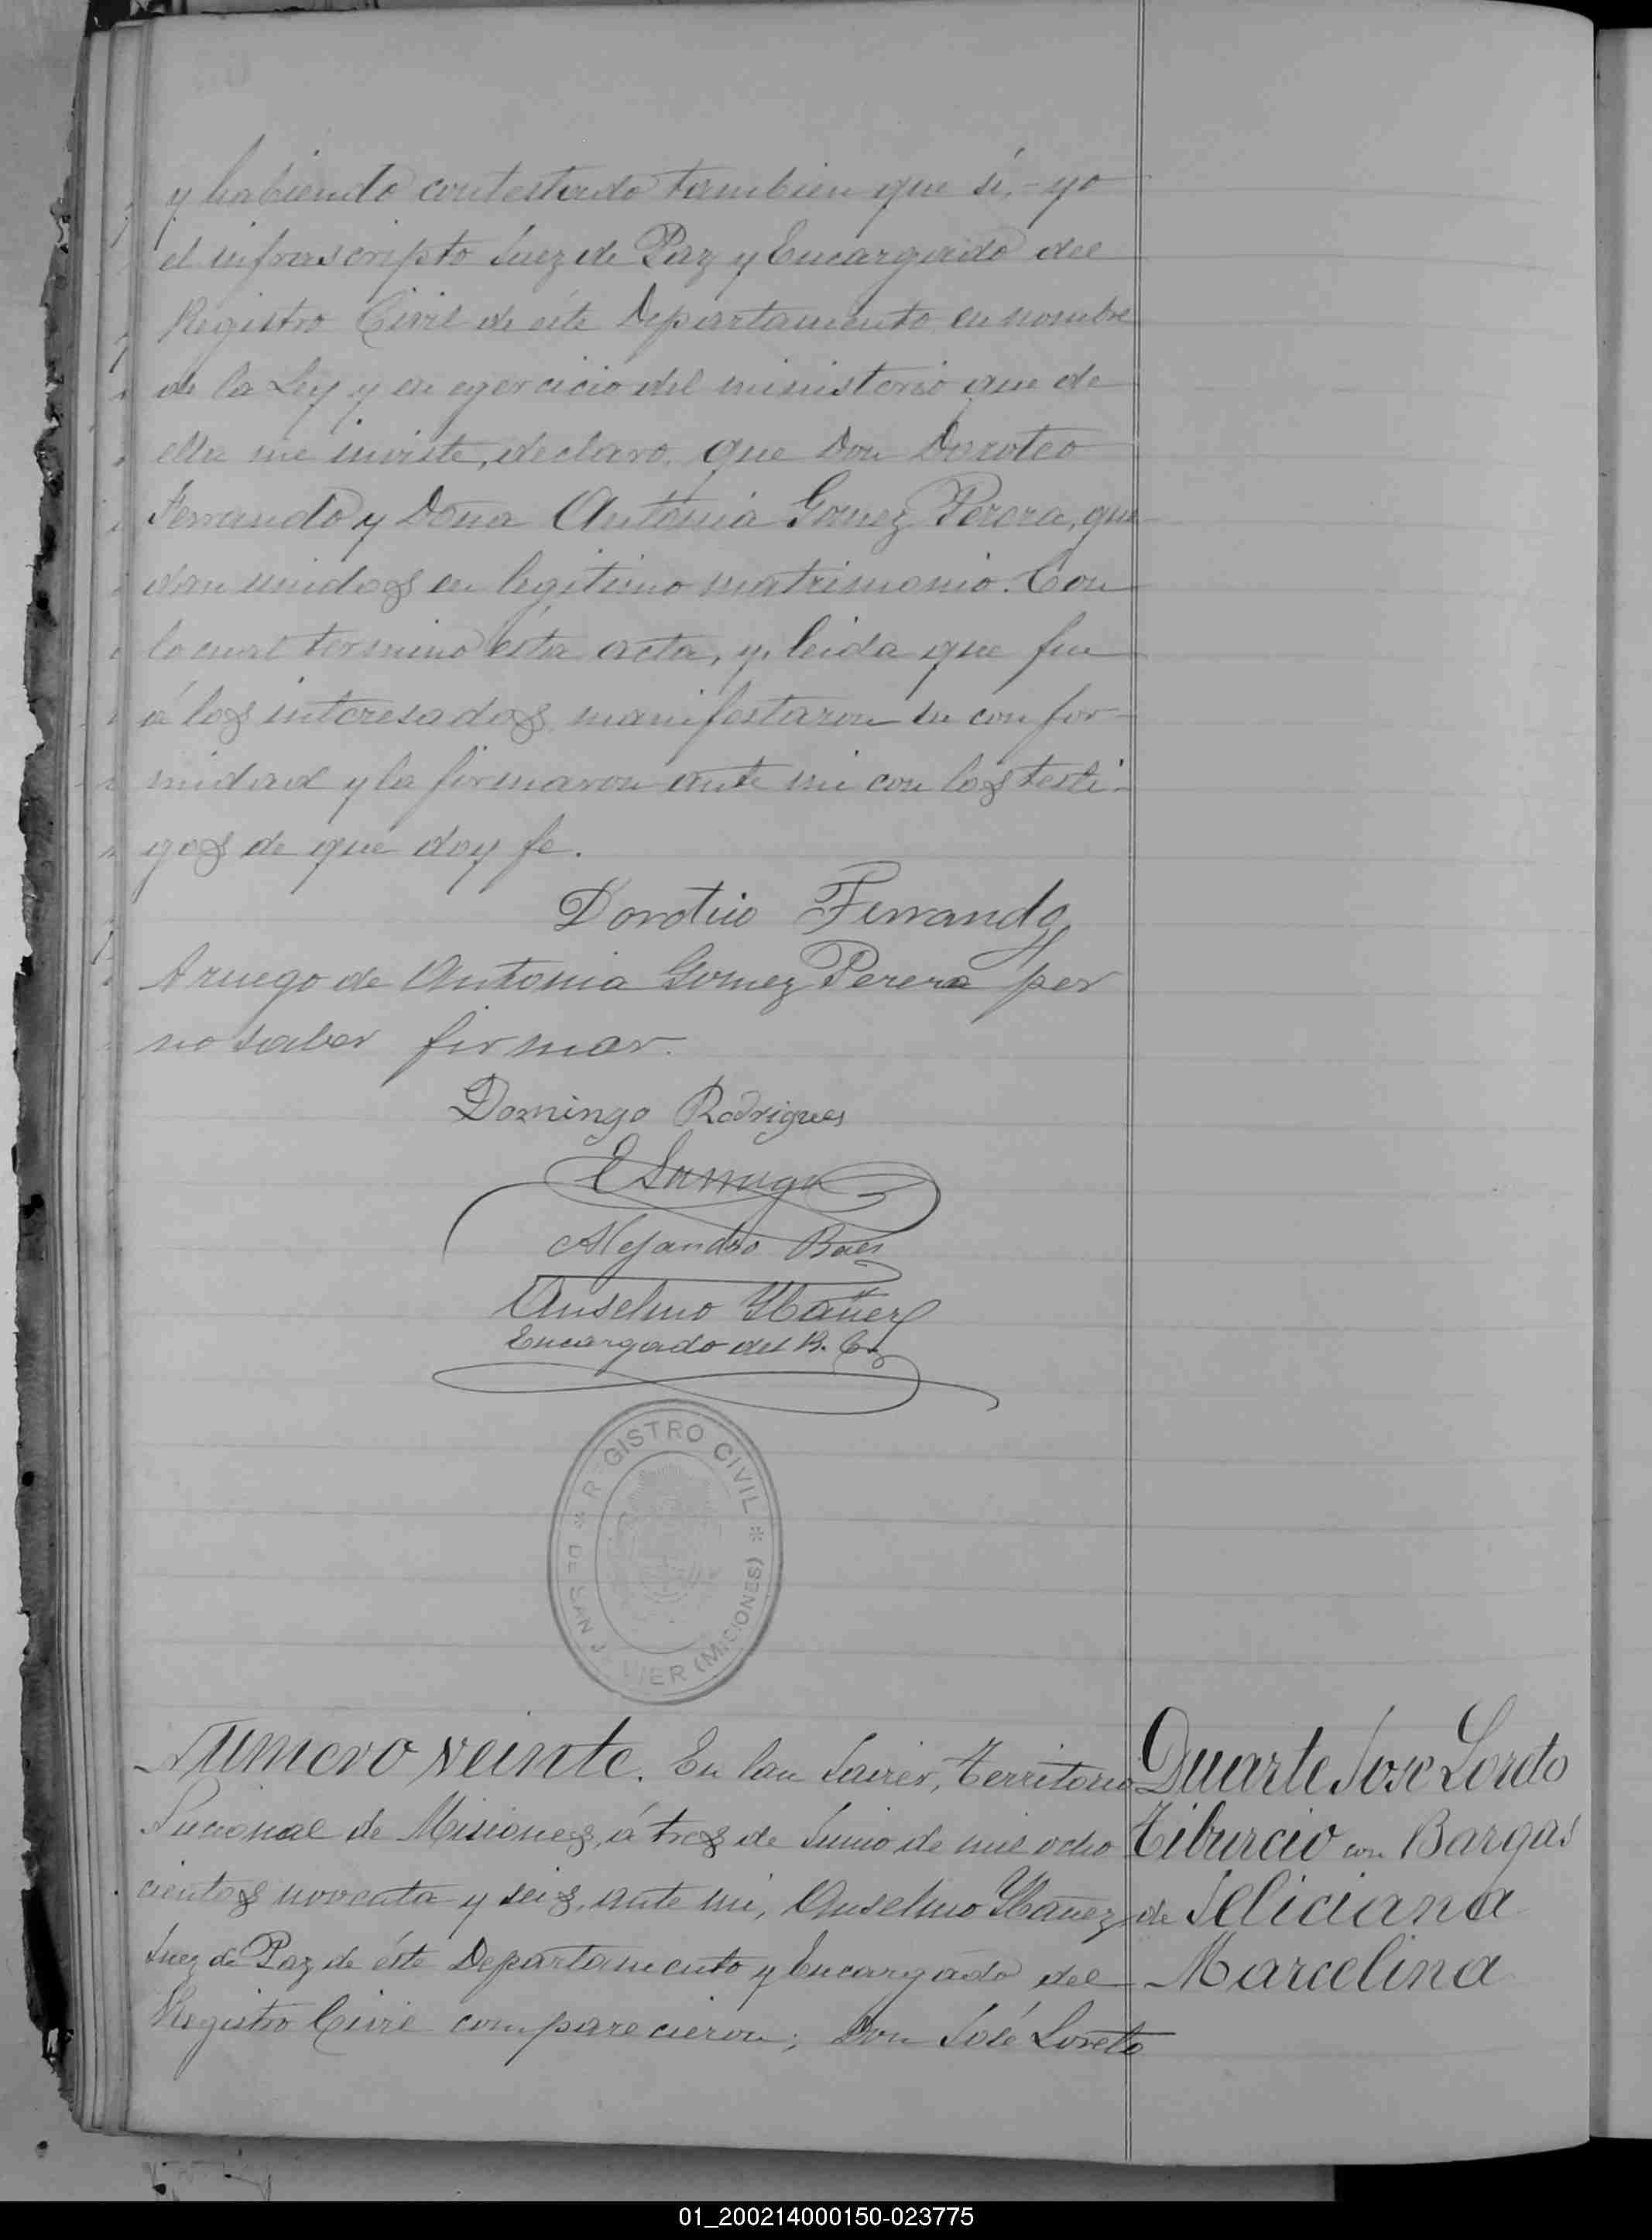 y habiendo contestado tambien que sí, - yo
el infrascripto Juez de Paz y Encargado del
Registro Civil de éste Departamento, en nombre
de la Ley y en egercicio del ministerio que de
ella me inviste, declaro, que Don Doroteo
Ferrando y Doña Antonia Gomez Perera, que
dan unidos en legitimo matrimonio. Con
lo cual termino ésta acta, y, leida que fue
á los interesados, manifestaron su confor-
midad y la firmaron ante mi con los testi-
gos de que doy fe.
Doroteo Ferrando
A ruego de Antonia Gomez Perera por
no saber firmar.
Domingo Rodrigues
Alejandro Baes
Anselmo Ybañez
Encargado del R. C.
REGISTRO CIVIL
DE SAN JAVIER (MICIONES)
Numero veinte. En San Javier, Territorio
Nacional de Misiones, á tres de Junio de mil ocho
cientos noventa y seis, ante mi, Anselmo Ybañez,
Juez de Paz de éste Departamento y Encargado del
Registro Civil comparecieron; Don José Loreto
Duarte Jose Loreto
Tiburcio con Bargas
de Feliciana
Marcelina
01_200214000150-023775